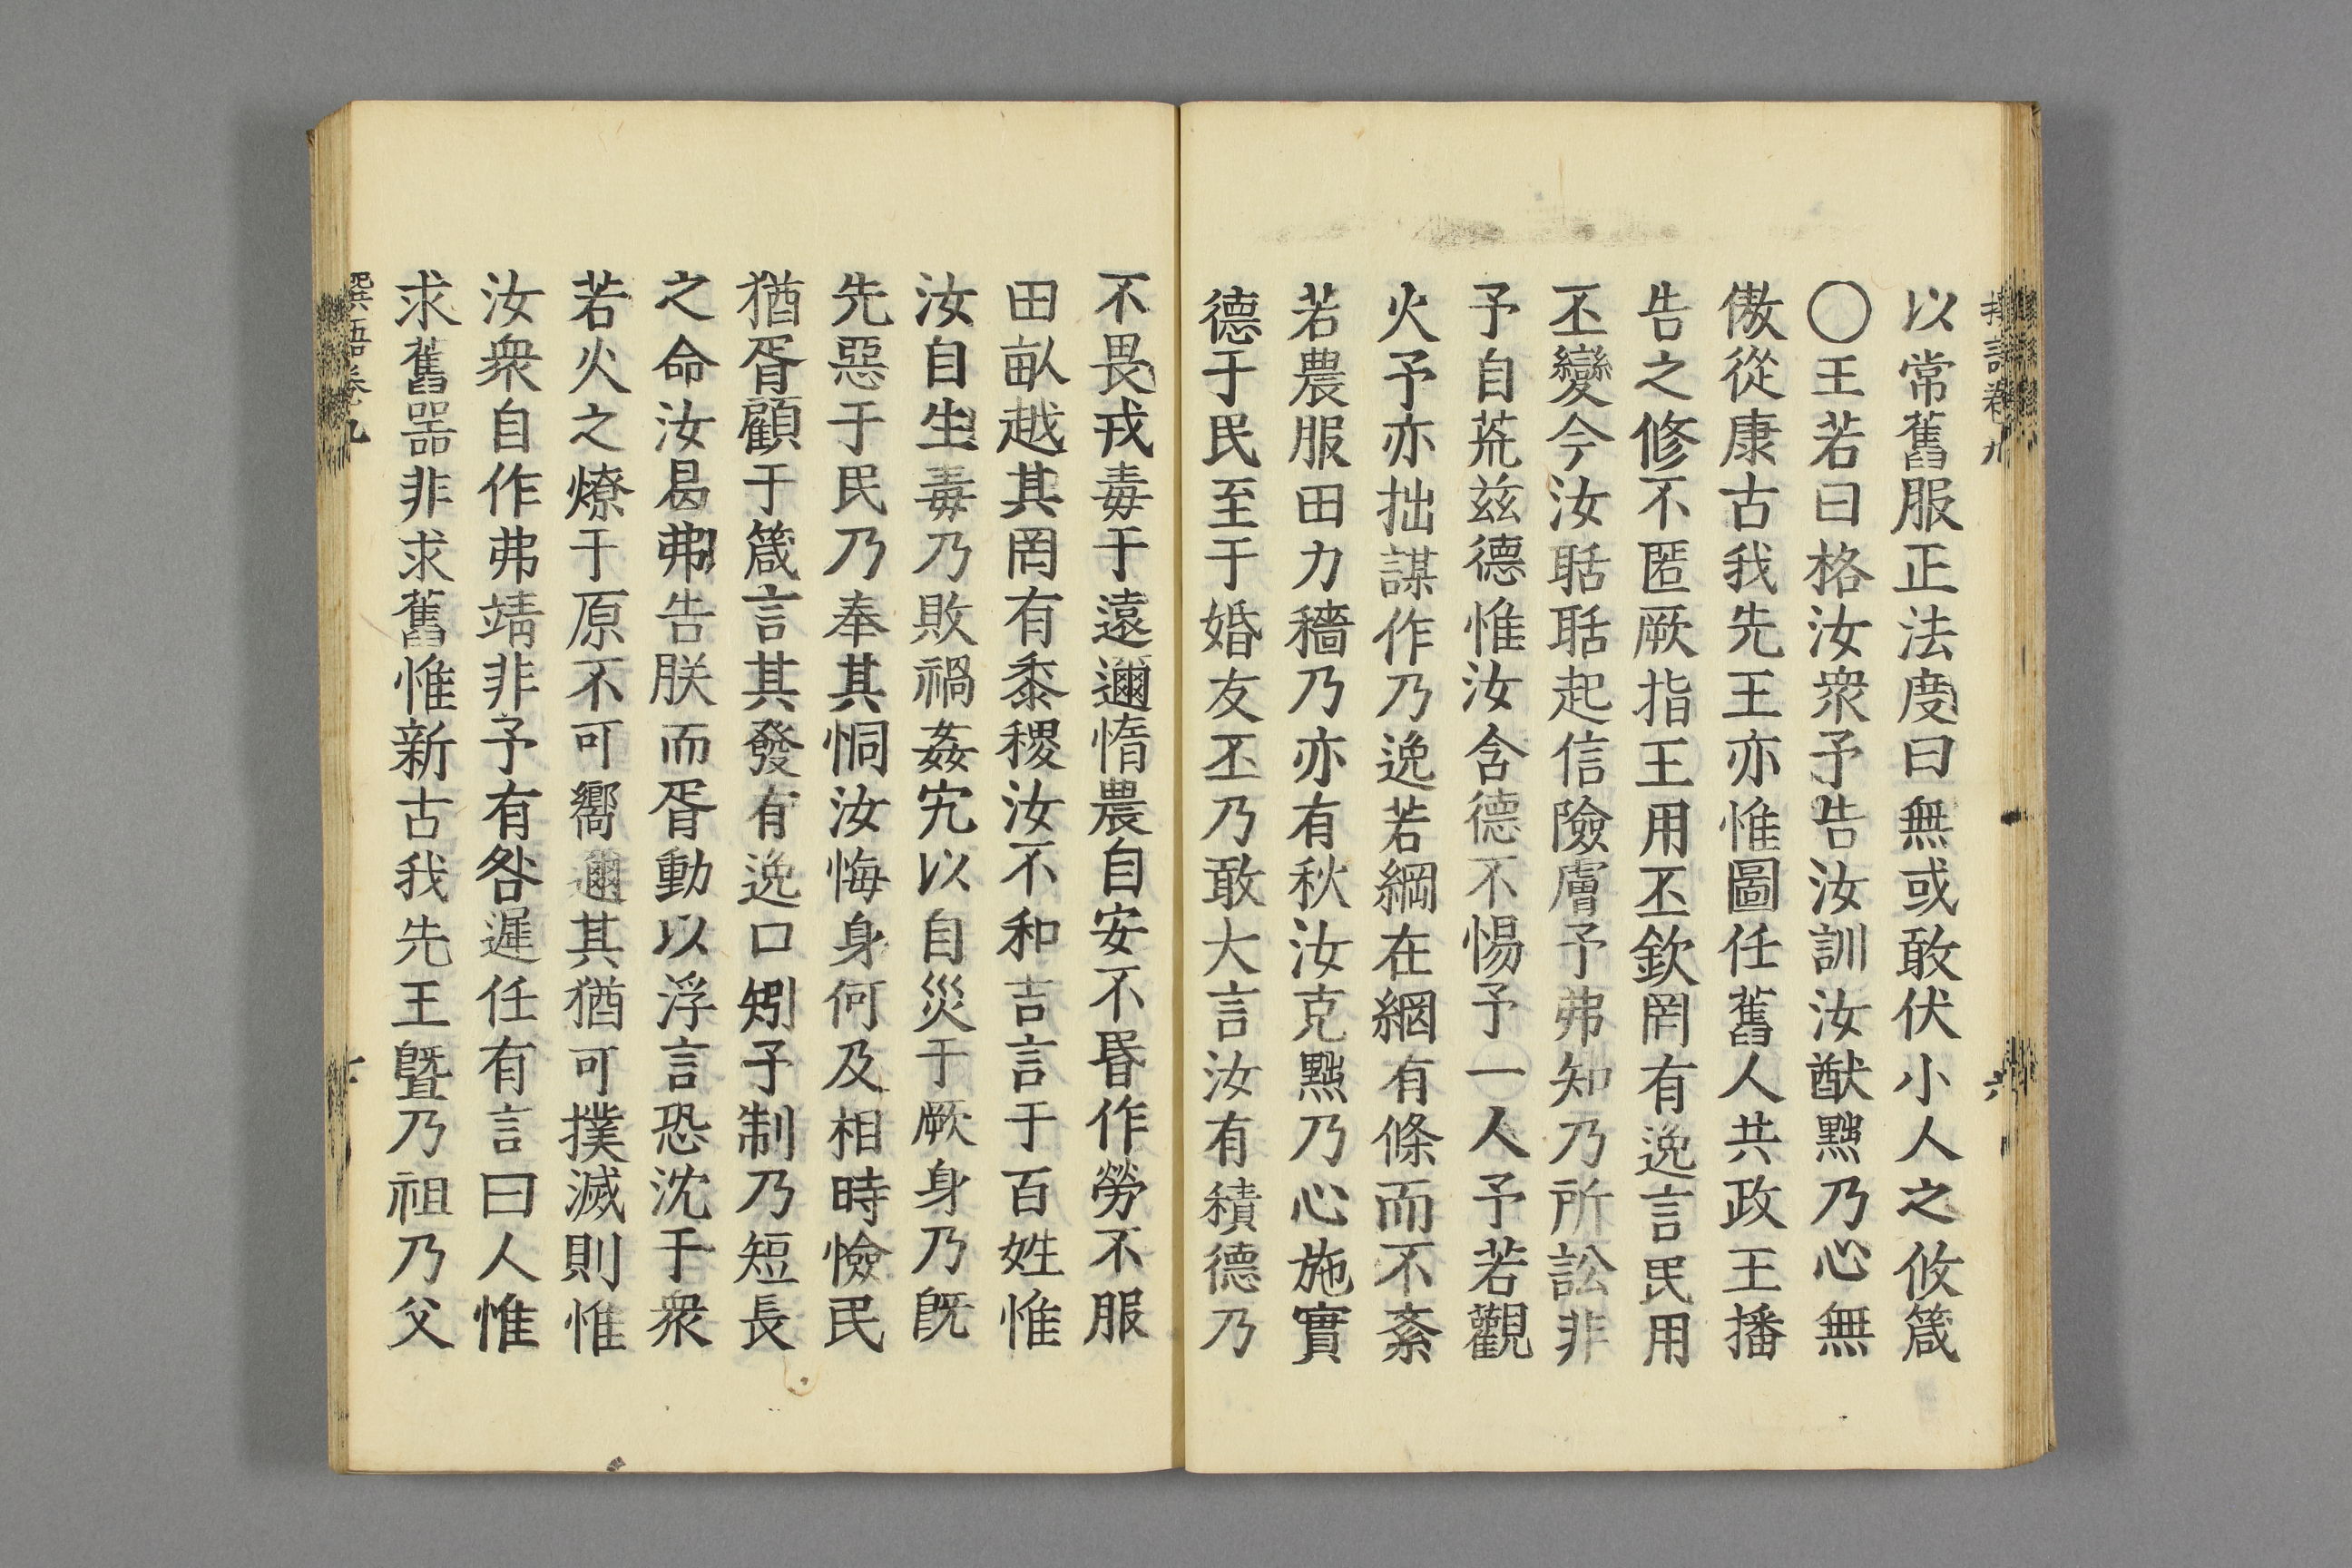 以常舊服正法度曰無或敢伏小人之攸箴
〇王若曰格汝衆予告汝訓汝猷黜乃心無
傲從康古我先王亦惟圖任舊人共政王播
告之修不匿厥指王用丕欽罔有逸言民用
丕變今汝聒聒起信險膚予弗知乃所訟非
予自荒玆德惟汝含德不惕予一人予若觀
火予亦拙謀作乃逸若綱在網有條而不紊
若農服田力穡乃亦有秋汝克黜乃心施實
德于民至于婚友丕乃敢大言汝有積德乃
不畏戎毒于遠邇惰農自安不昬作勞不服
田畝越其罔有黍稷汝不和吉言于百姓惟
汝自生毒乃敗禍姦宄以自災于厥身乃旣
先惡于民乃奉其恫汝悔身何及相時憸民
猶胥顧于箴言其發有逸口矧予制乃短長
之命汝曷弗告朕而胥動以浮言恐沈于衆
若火之燎于原不可嚮邇其猶可撲滅則惟
汝衆自作弗靖非予有咎遲任有言曰人惟
求舊器非求舊惟新古我先王曁乃祖乃父
卷九